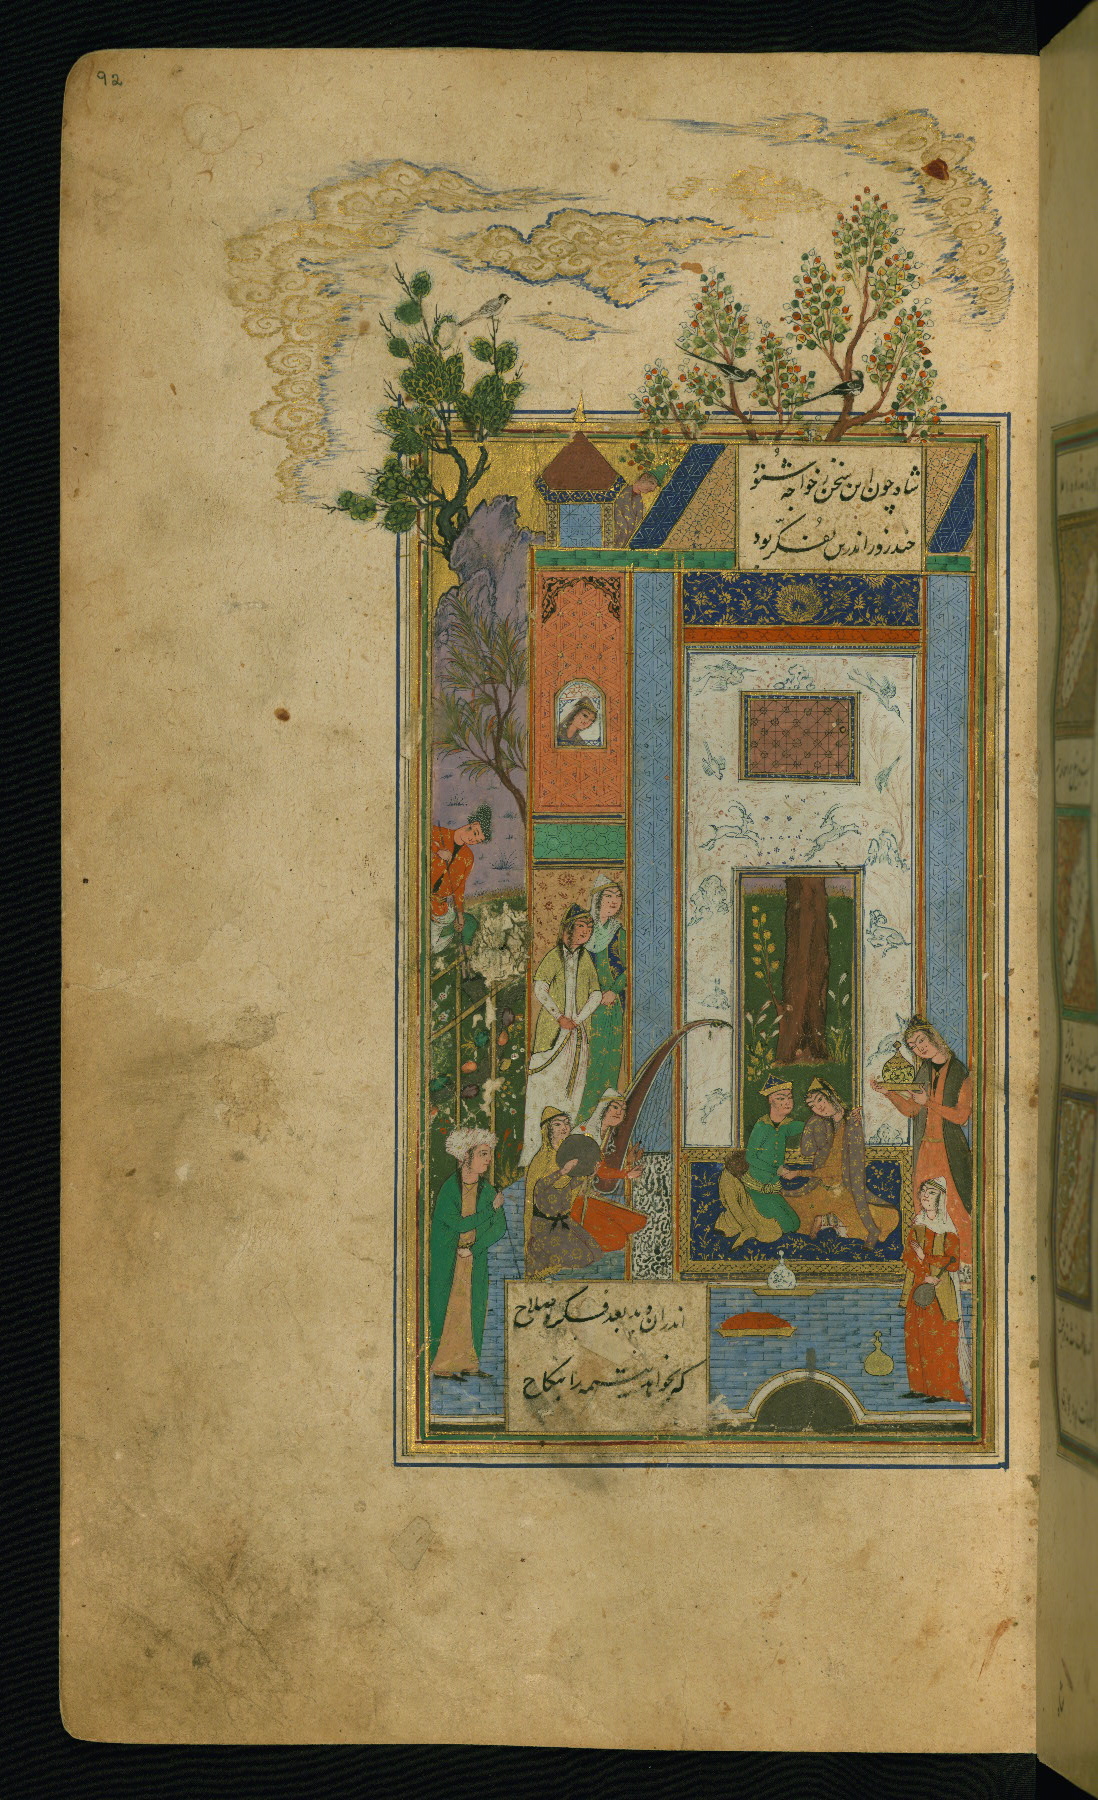 92
شاه چون این سخن ز خواجه شنود
چند روز اندرین تفکر بود
اندران دید بعد فکر و صلاح
که بخواهد
را بنکاح